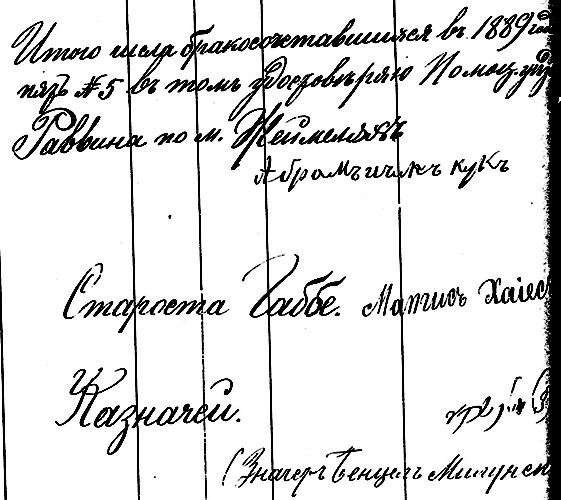 Итого числа бракосочетавшимися въ 1889 год
пять № 5 въ томъ удостовѣряю Помощ.
Раввина по м. Жеймелявъ
Абрамъ ицикъ кукъ
Староста Габбе. Матисъ Хаiес
Казначей.
(Значеръ Бенцель